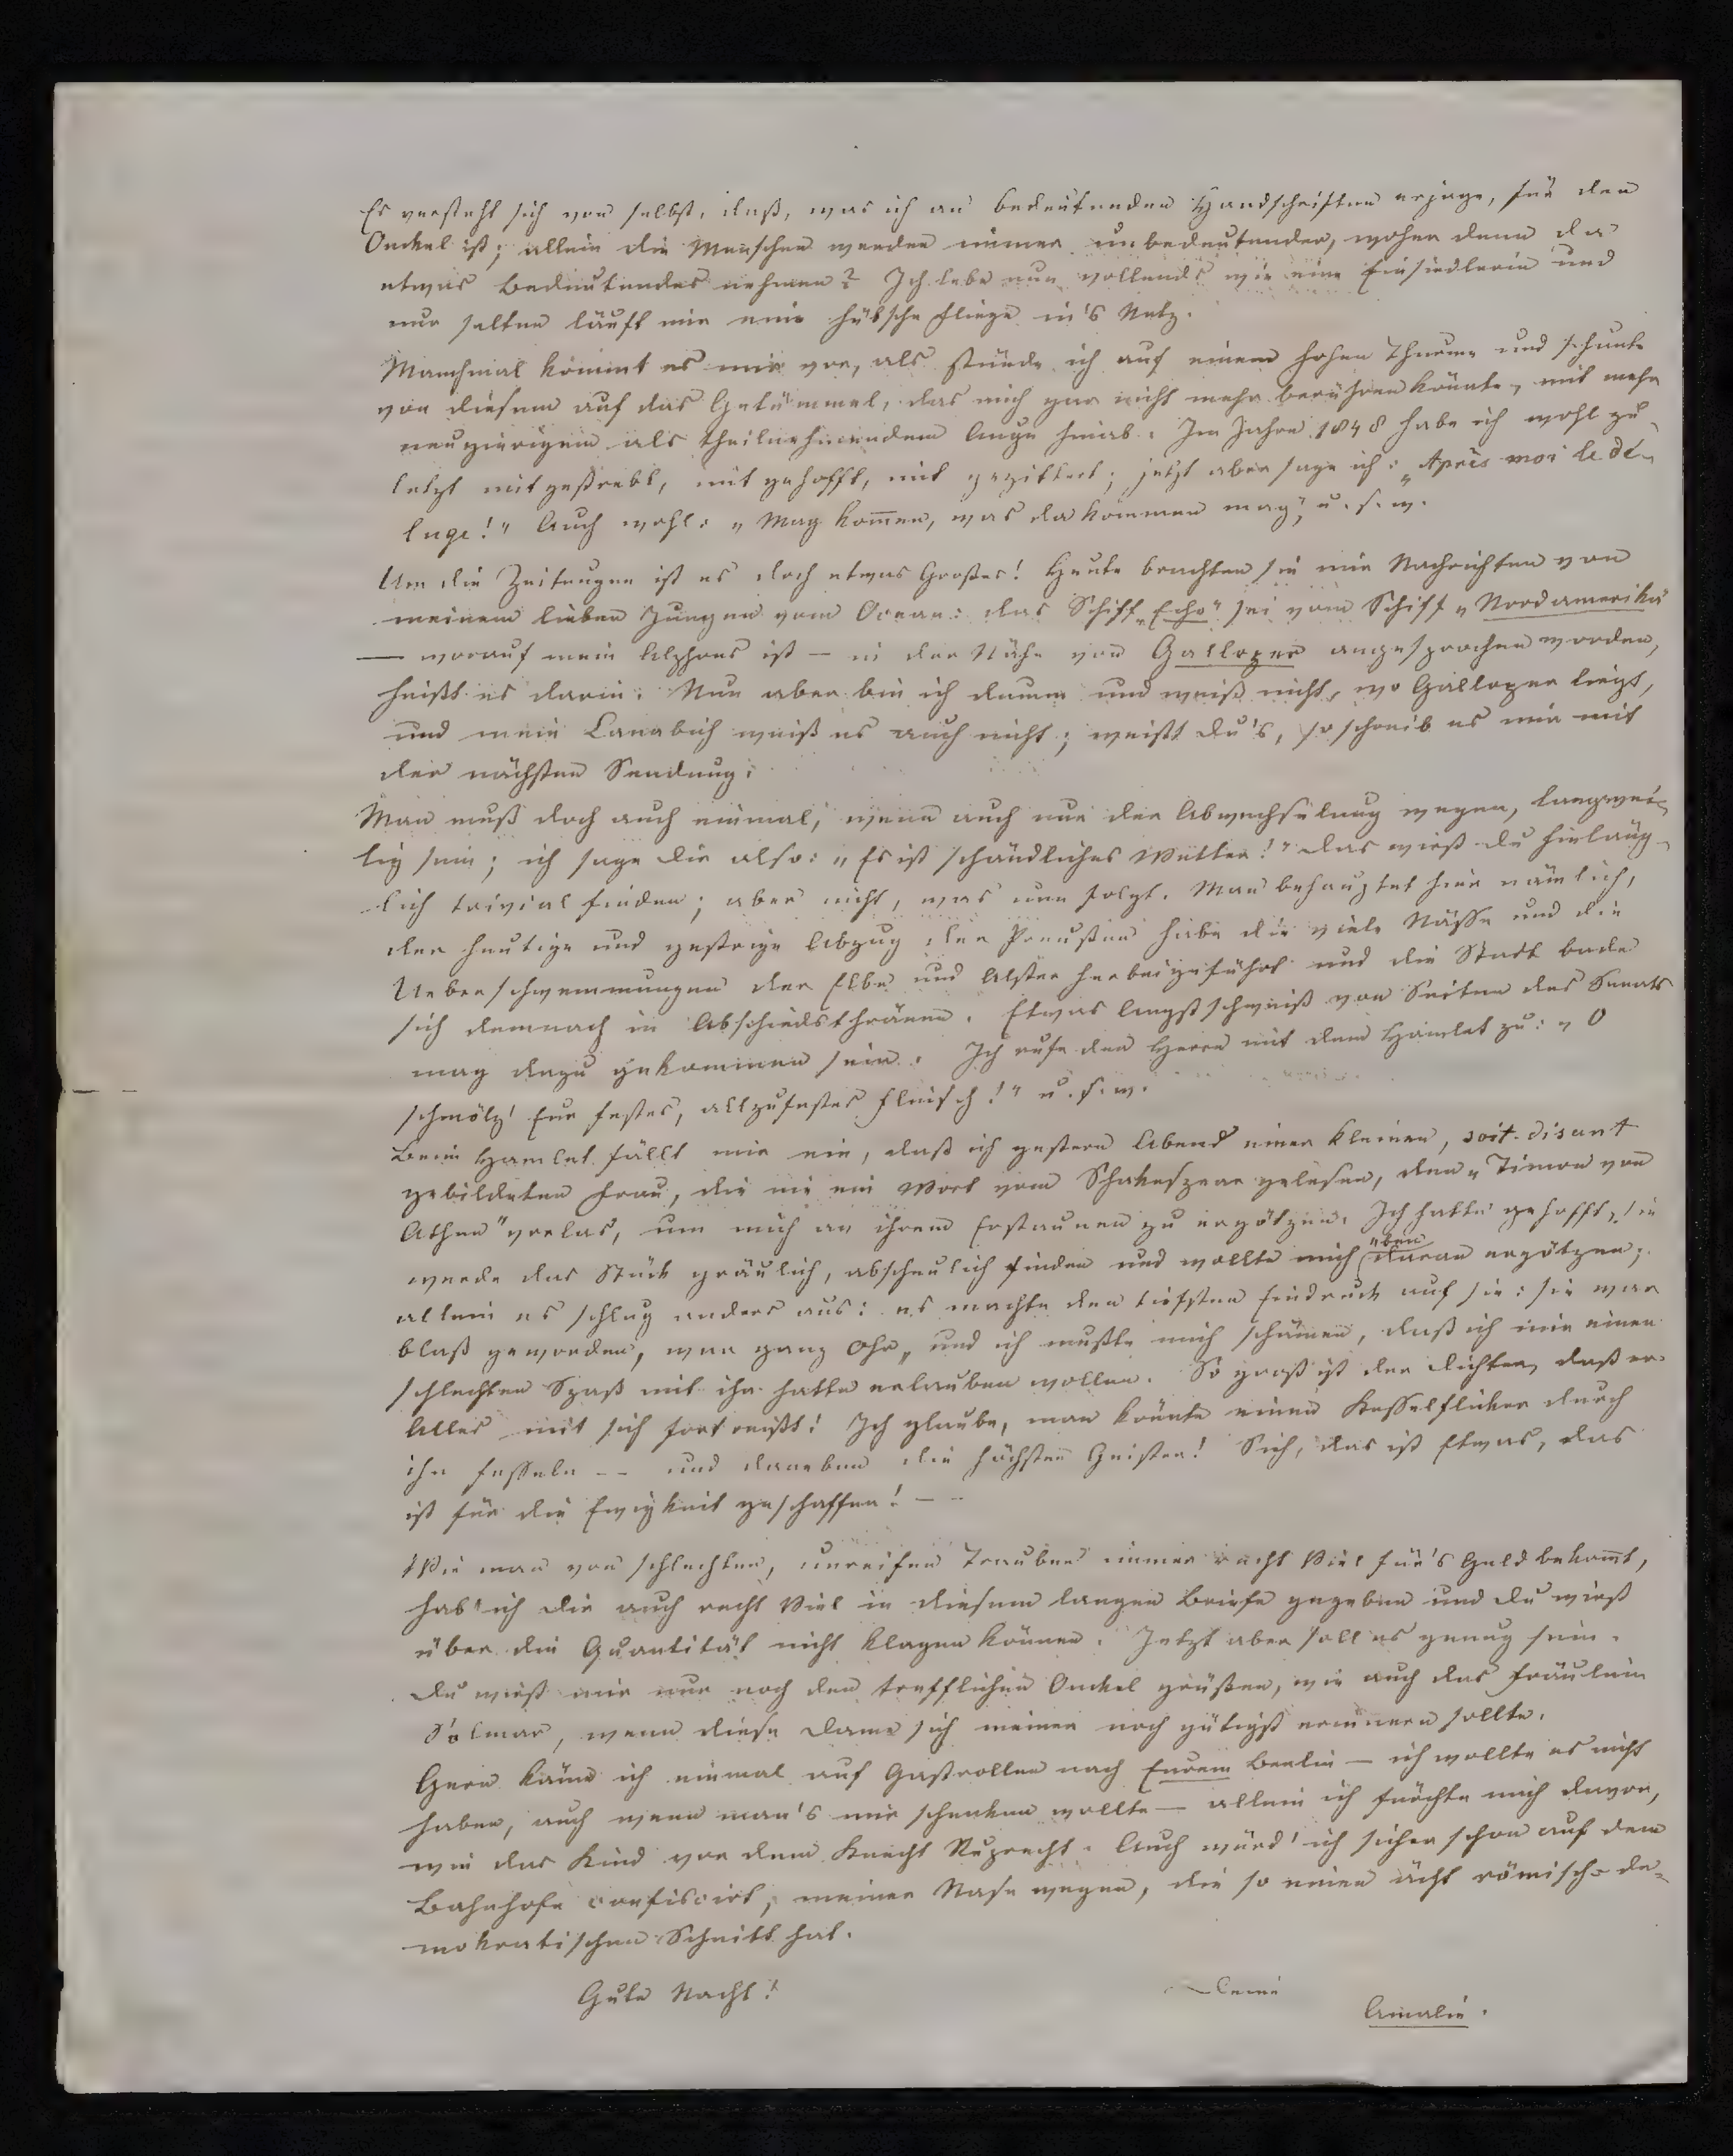 Es versteht sich von selbst, daß, was ich an bedeutenden Handschriften erjage, für den
Onckel ist; allein die Menschen werden immer unbedeutender, woher denn da
etwas Bedeutendes nehmen? Ich lebe nun vollends wie eine Einsiedlerin und
nur selten läuft mir eine hübsche Fliege in's Netz.
Manchmal kömmt es mir vor, als stünde ich auf einem hohen Thurme und schaute
von diesem auf das Getümmel, das mich gar nicht mehr berühren könnte, mit mehr
neugierigem als theilnehmendem Auge hinab. Im Jahre 1848 habe ich wohl zu-
letzt mit gestrebt, mit gehofft, mit gezittert; jetzt aber sage ich: „Après moi le dé-
luge!" Auch wohl: „Mag kom̅en, was da kommen mag", u. s. w.
Um die Zeitungen ist es doch etwas Großes! Heute brachten sie mir Nachrichten von
meinem lieben Jungen vom Ocean: das Schiff „Echo" sei vom Schiff „Nordamerika"
— worauf mein Alphons ist — in der Nähe von Galloper angesprochen worden,
heißt es darin. Nun aber bin ich dumm und weiß nicht, wo Galloper liegt,
und mein Cannabich weiß es auch nicht; weißt Du's, so schreib es mir mit
der nächsten Sendung.
Man muß doch auch einmal, wenn auch nur der Abwechselung wegen, langwei-
lig sein; ich sage Dir also: „Es ist schändliches Wetter!" Das wirst Du hinläng-
lich trivial finden; aber nicht, was nun folgt. Man behauptet hier nämlich,
der heutige und gestrige Abzug der Preußen habe die viele Nässe und die
Ueberschwemmungen der Elbe und Alster herbeigeführt und die Stadt bade
sich demnach in Abschiedsthränen. Etwas Angstschweiß von Seiten des Senats
mag dazu gekommen sein. Ich rufe den Herrn mit dem Hamlet zu: „O
schmölz' Eur festes, allzufestes Fleisch!" u. s. w.
Beim Hamlet fällt mir ein, daß ich gestern Abend einer kleinen, soit-disant
gebildeten Frau, die nie ein Wort vom Schakespear gelesen, den „Timon von
Athen" vorlas, um mich an ihrem Erstaunen zu ergötzen. Ich hatte gehofft, sie
werde das Stück gräulich, abscheulich finden und wollte mich eben daran ergötzen;
allein es schlug anders aus: es machte den tiefsten Eindruck auf sie: sie war
blaß geworden, war ganz Ohr, und ich mußte mich schämen, daß ich mir einen
schlechten Spaß mit ihr hatte erlauben wollen. So groß ist der Dichter, daß er
Alles mit sich fortreißt! Ich glaube, man könnte einen Kesselflicker durch
ihn fesseln -- und daneben die höchsten Geister! Sieh, das ist Etwas, das
ist für die Ewigkeit geschaffen! —
Wie man von schlechten, unreifen Trauben immer recht Viel für's Geld bekom̅t,
hab' ich Dir auch recht Viel in diesem langen Briefe gegeben und Du wirst
über die Quantität nicht klagen können. Jetzt aber soll es genug sein.
Du wirst mir nur noch den trefflichen Onckel grüßen, wie auch das Fräulein
Solmar, wenn diese Dame sich meiner noch gütigst erinnern sollte.
Gern käme ich einmal auf Gastrollen nach Eurem Berlin — ich wollte es nicht
haben, auch wenn man's mir schenken wollte — allein ich fürchte mich davor,
wie das Kind vor dem Knecht Ruprecht. Auch würd' ich sicher schon auf dem
Bahnhofe confiscirt, meiner Nase wegen, die so einen ächt römisch-de-
mokratischen Schnitt hat.
Gute Nacht!
Deine
Amalie.